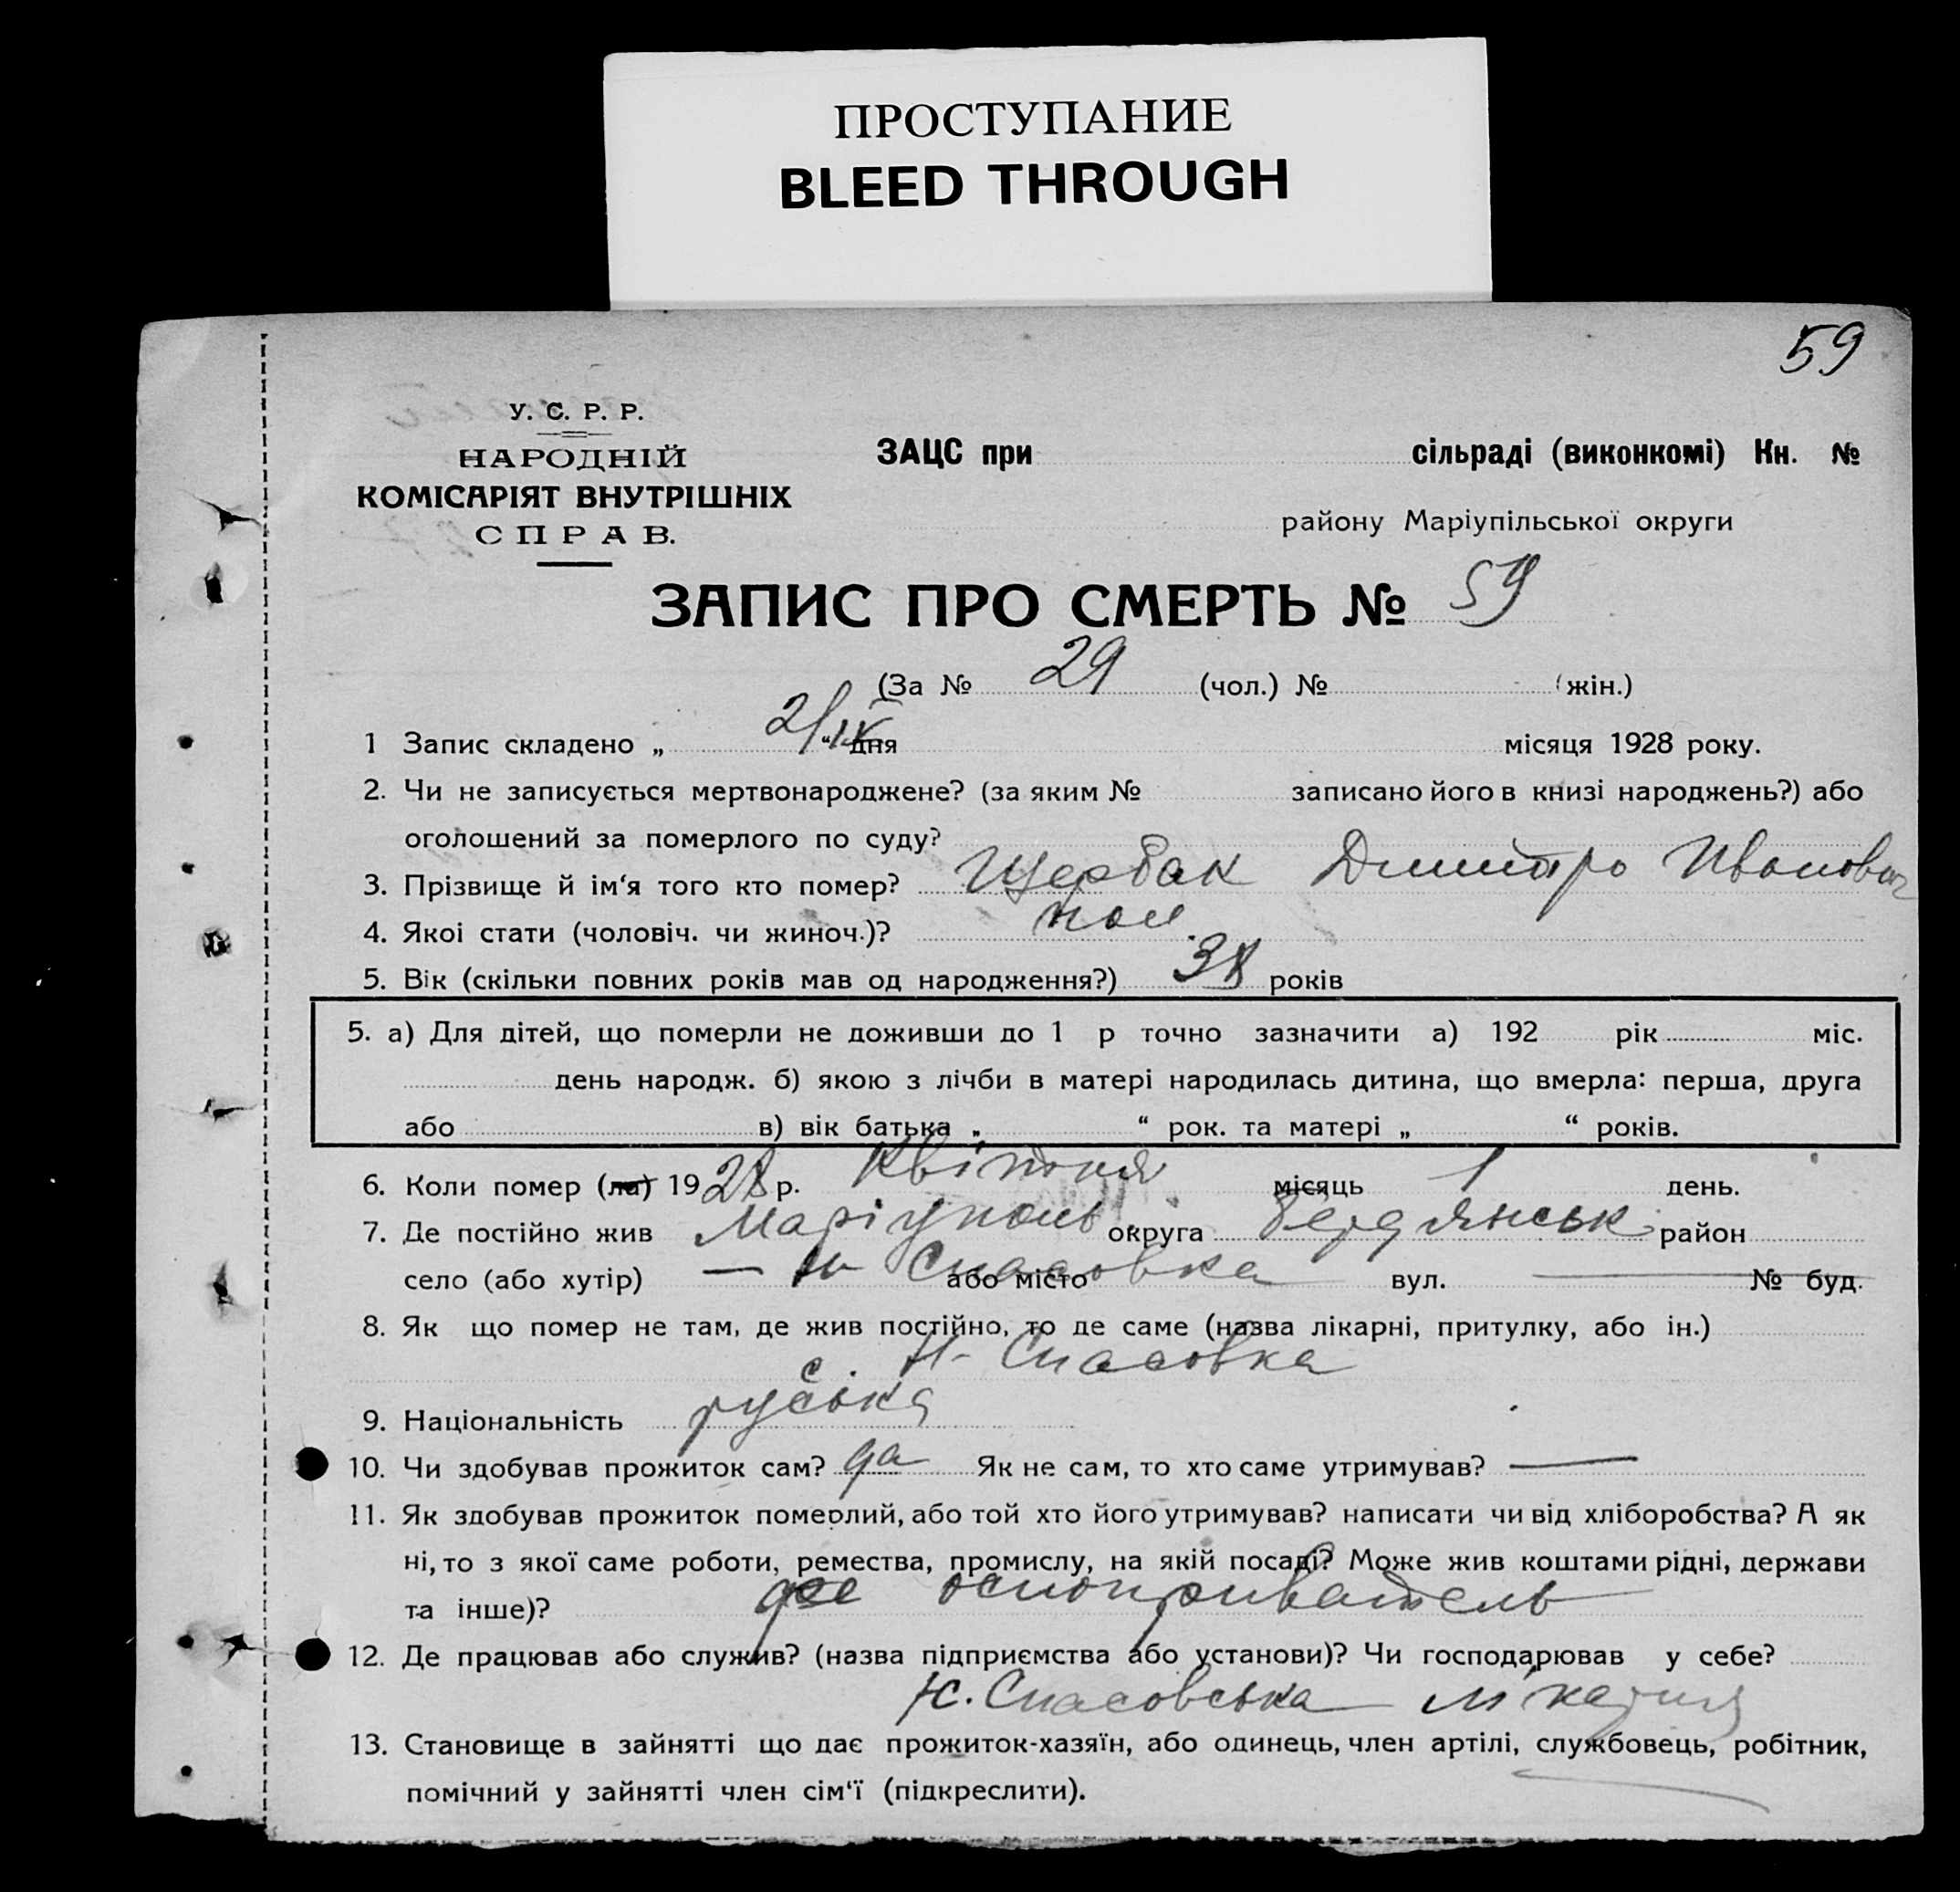 ПРОСТУПАНИЕ
BLEED THROUGH
59
У. С. Р. Р.
НАРОДНІЙ
КОМІСАРІЯТ ВНУТРІШНІХ
СПРАВ.
ЗАЦС при сільраді (виконкомі) Кн. №
району Маріупільської округи
ЗАПИС ПРО СМЕРТЬ № 59
(За № 29 (чол.) № (жін.)
1 Запис складено „ 2/IV “ дня місяця 1928 року.
2. Чи не записується мертвонароджене? (за яким № записано його в книзі народжень?) або
оголошений за померлого по суду?
3. Прізвище й ім‘я того кто помер? Щербак Дмитро Иванович
4. Якоі стати (чоловіч. чи жиноч.)? чол.
5. Вік (скільки повних років мав од народження?) 38 років
5. а) Для дітей, що померли не доживши до 1 р точно зазначити а) 192 рік міс.
день народж. б) якою з лічби в матері народилась дитина, що вмерла: перша, друга
або в) вік батька „ “ рок. та матері „ “ років.
6. Коли помер (ла) 1928 р. Квітня місяць 1 день.
7. Де постійно жив Маріуполь округа Бердянськ район
село (або хутір) — Н Спасовка або місто вул. — № буд.
8. Як що помер не там, де жив постійно, то де саме (назва лікарні, притулку, або ін.)
с. Н-Спасовка
9. Національність руська
10. Чи здобував прожиток сам? да Як не сам, то хто саме утримував? —
11. Як здобував прожиток померлий, або той хто його утримував? написати чи від хліборобства? А як
ні, то з якої саме роботи, ремества, промислу, на якій посаді? Може жив коштами рідні, держави
та інше)? оспоприватель
12. Де працював або служив? (назва підприємства або установи)? Чи господарював у себе?
Н. Спасовська лікарня
13. Становище в зайнятті що дає прожиток-хазяїн, або одинець, член артілі, службовець, робітник,
помічний у зайнятті член сім‘ї (підкреслити).